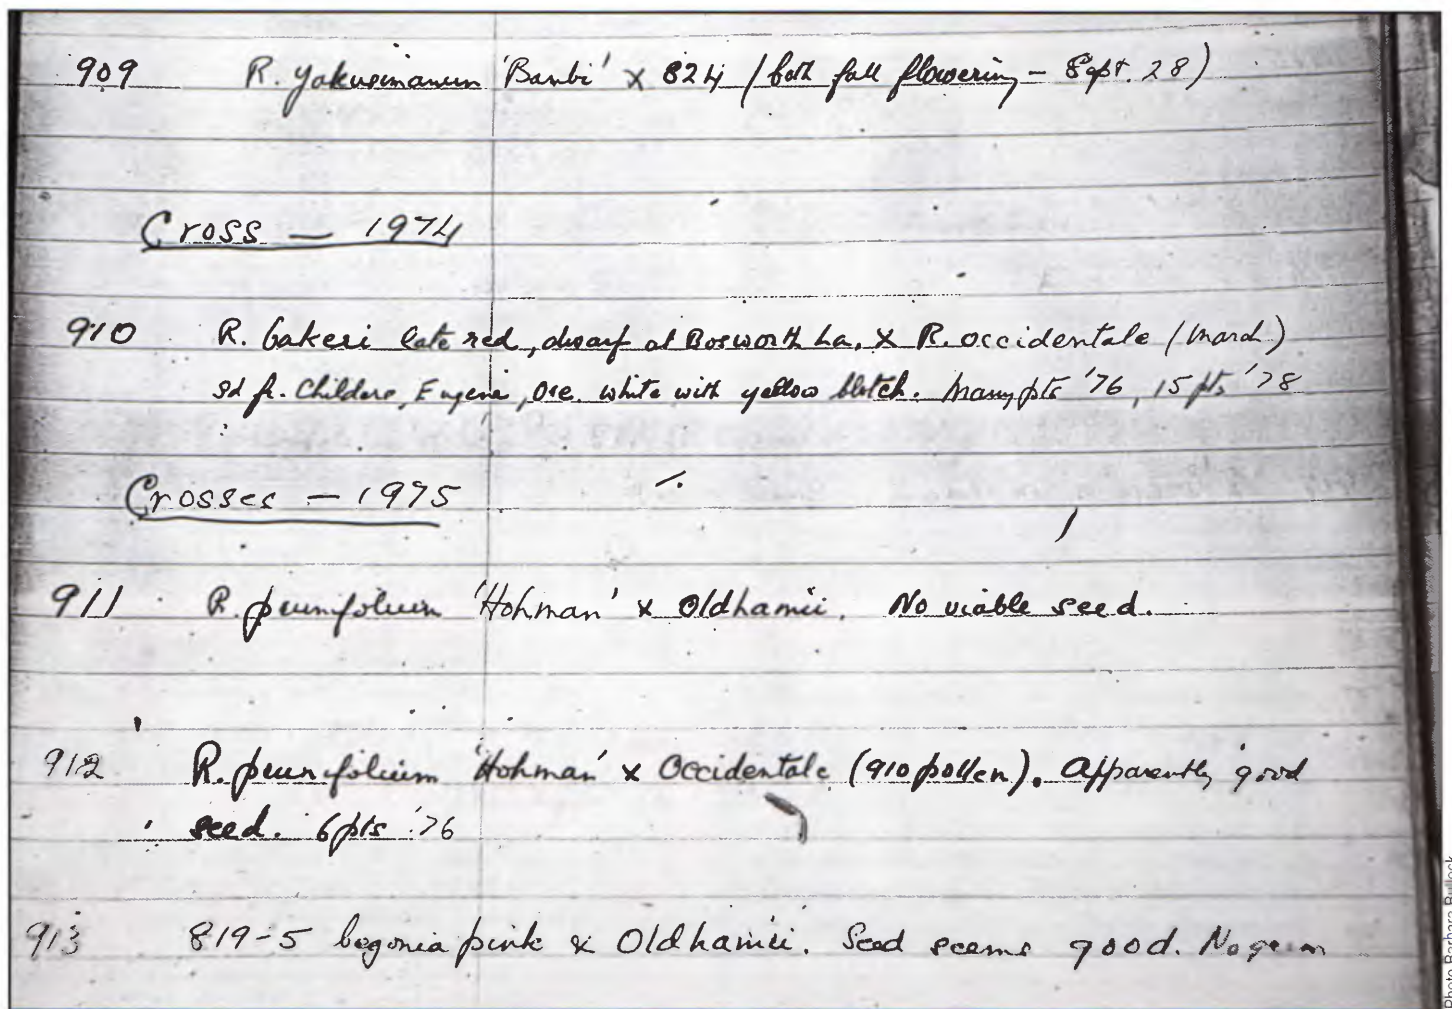 909 R. yakusimanum 'Bambi' × 824 (both fall flowering - Sept. 28)
Cross — 1974
910 R. bakeri late red, dwarf at Bosworth La. × R. occidentale (March)
sd fr. Childers, Eugene, Ore. white with yellow blotch. Many pts '76, 15 pts '78
Crosses — 1975
911 R. prunifolium 'Hohman' × Oldhamii. No viable seed.
912 R. prunifolium 'Hohman' × Occidentale (910 pollen). Apparently good
seed. 6 pts '76
913 819-5 begonia pink × Oldhamii. Seed seems good. No germ
Photo Barbara Bullock